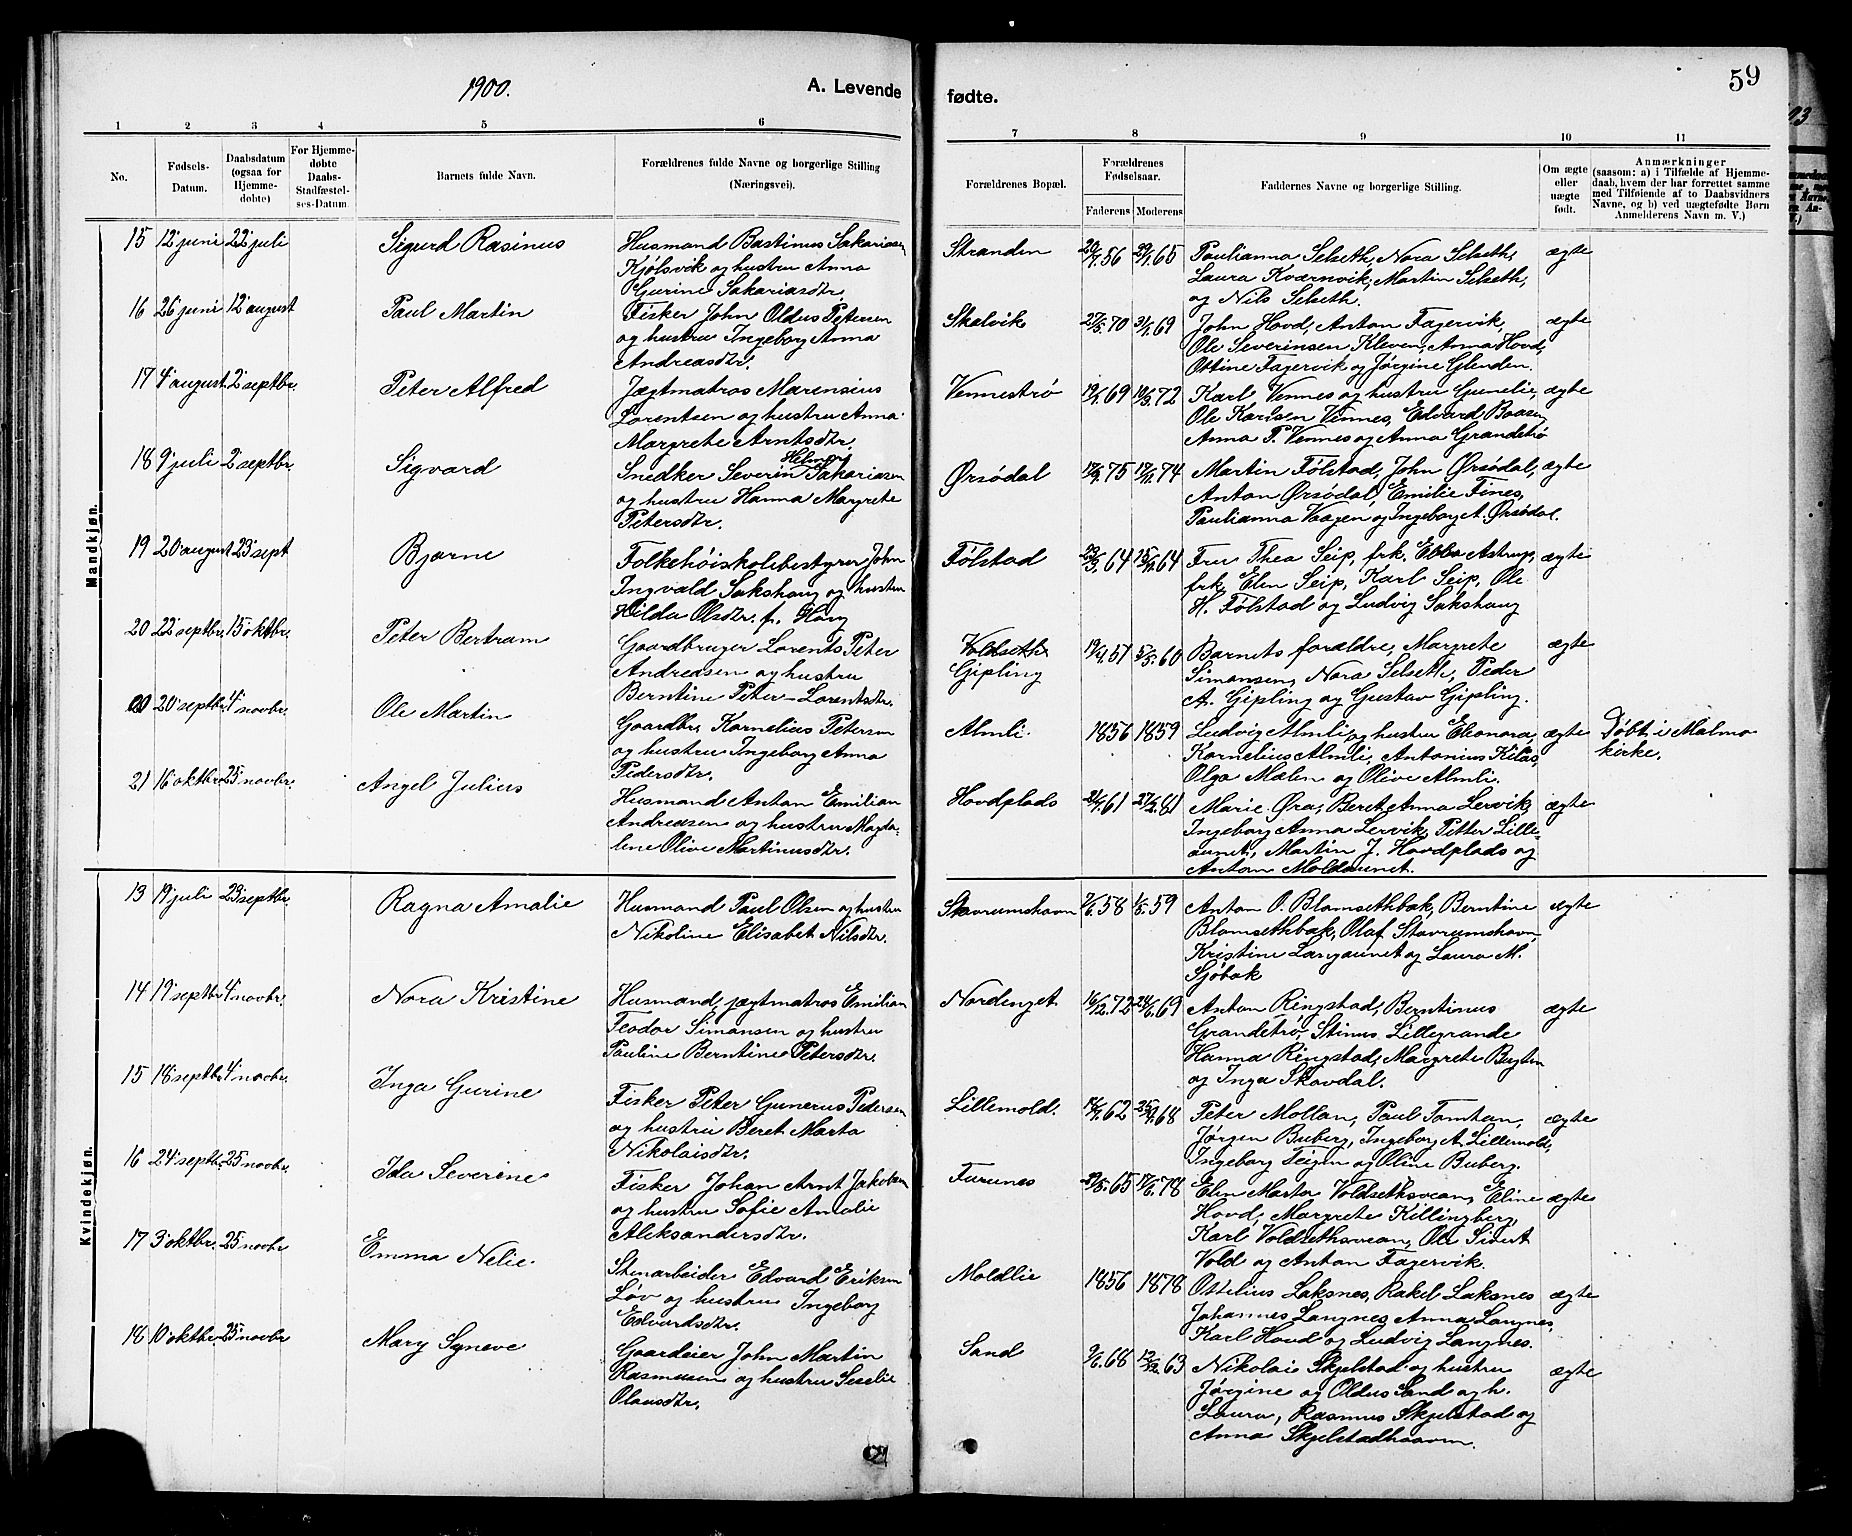 1900.
A. Levende
fødte.
59
1 2 3 4 5 6 7 8 9 10 11
No.
Fødsels-
Datum.
Daabsdatum
(ogsaa for
Hjemme-
døbte)
For Hjemme-
døbte
Daabs-
Stadfæstel-
ses-Datum
Barnets fulde Navn.
Forældrenes fulde Navne og borgerlige Stilling
(Næringsvei).
Forældrenes Bopæl.
Forældrenes
Fødselsaar.
Faderens Moderens
Faddernes Navne og borgerlige Stilling.
Om ægte
eller
uægte
født.
Anmærkninger
(saasom: a) i Tilfælde af Hjemme-
daab, hvem der har forrettet samme
med Tilføiende af to Daabsvidners
Navne, og b) ved uægtefødte Børn
Anmelderens Navn m. V.)
Mandkjøn.
15 12' juni 22' juli Sigurd Rasinus Husmand Bastinus Sakariasen
Kjølsvik og hustru Anna
Gurine Sakariasdtr.
Stranden 56 65 Paulianna Selseth, Nora Selseth,
Laura Kvernvik, Martin Selseth,
og Nils Selseth.
ægte
16 26' juni 12' august Paul Martin Fisker John Oldus Petersen
og hustru Ingeborg Anna
Andreasdtr.
Skalvik 27/5.70 69 John Hovd, Anton Fagervik,
Ole Severinsen Kleven, Anna Hovd,
Ottine Fagervik og Jørgine Glenden.
ægte
17 4' august 2' septbr. Peter Alfred Jægtmatros Marensius
Lorentsen og hustru Anna
Margrete Arntsdtr.
Vennestrø 69 72 Karl Vennes og hustru Gunelie,
Ole Karlsen Vennes, Edvard Boasen
Anna P. Vennes og Anna Grandetrø
ægte
18 9' juli 2' septbr. Sigvard Snedker Severin Helmer Sakariasen
og hustru Hanna Margrete
Petersdtr.
Ørsødal 75 74 Martin Følstad, John Ørsødal,
Anton Ørsødal, Emilie Fines,
Paulianna Vaagen og Ingeborg A. Ørsødal.
ægte
19 20' august 23' sept Bjarne Folkehøiskolebestyrer John
Ingvald Sakshaug og hustru
Hilda Olsdtr. f. Haug
Følstad 64 64 Fru Thea Seip, frk. Ebba Astrup,
frk. Elen Seip, Karl Seip, Ole
H. Følstad og Ludvig Sakshaug
ægte
20 22' septbr. 15' oktbr. Peter Bertram Gaardbruger Lorents Peter
Andreasen og hustru
Berntine Peter-Lorentsdtr.
Voldseth
Gipling 57 60 Barnets forældre, Margrete
Simonsen, Nora Selseth, Peder
A. Gipling og Gustav Gipling.
ægte
20 20' septbr. 4' novbr. Ole Martin Gaardbr. Kornelius Petersen
og hustru Ingeborg Anna
Pedersdtr.
Almli. 1856 1859 Ludvig Almli og hustru Eleonora,
Kornelius Almli, Antonius Kilas,
Olga Mælen og Olive Almli.
ægte Døbt i Malmo
kirke.
21 16' oktbr. 25' novbr. Angel Julius Husmand Anton Emilian
Andreasen og hustru Magda-
lene Olive Martinusdtr.
Hovdplads 61 81 Marie Øra, Beret Anna Lervik,
Ingeborg Anna Lervik, Petter Lille-
aunet, Martin J. Hovdplads og
Anton Moldaunet.
ægte
Kvindekjøn.
13 19' juli 23' septbr. Ragna Amalie Husmand Paul Olsen og hustru
Nikoline Elisabet Nilsdtr.
Stavrumshavn 58 59 Anton O. Blomsethbak, Berntine
Blomsethbak, Olaf Stavrumshavn,
Kristine Langaunet og Laura M.
Sjøbak
ægte
14 19' septbr. 4' novbr. Nora Kristine Husmand, jægtmatros Emilian
Teodor Simonsen og hustru
Pauline Berntine Petersdtr.
Nordenget 16/12.72 69 Anton Ringstad, Berntinus
Grandetrø, Stinus Lillegrande
Hanna Ringstad, Margrete Buytan
og Inga Skavdal.
ægte
15 18' septbr. 4' novbr. Inga Gurine Fisker Peter Gunerus Pedersen
og hustru Beret Marta
Nikolaisdtr.
Lillemold. 62 68 Peter Mollan, Paul Tomtan,
Jørgen Buberg, Ingeborg A. Lillemold,
Ingeborg Teigen og Oline Buberg.
ægte
16 24' septbr. 25' novbr. Ida Severine Fisker Johan Arnt Jakobsen
og hustru Sofie Amalie
Aleksandersdtr.
Furunes 65 78 Elen Marta Voldsethsvean, Eline
Hovd, Margrete Killingberg,
Karl Voldsethsvean, Ole Sivert
Vold og Anton Fagervik.
ægte
17 3' oktbr. 25' novbr Emma Nelie. Stenarbeider Edvard Eriksen
Løv og hustru Ingeborg
Edvardsdtr.
Moldlie 1856 1878 Ottelius Laksnes, Rakel Laksnes
Johannes Langnes, Anna Langnes,
Karl Hovd og Ludvig Langnes.
ægte
18 10' oktbr. 25' novbr Mary Synøve Gaardeier John Martin
Rasmussen og hustru Seselie
Olausdtr.
Sand 68 63 Nikolai Skjelstad og hustru
Jørgine og Oldus Sand og h.
Laura, Rasmus Skjelstad og
Anna Skjelstadhaven.
ægte